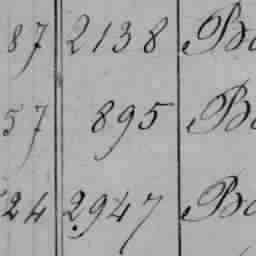 87 2138 Bo
57 895 Bo
24 2947 Bo